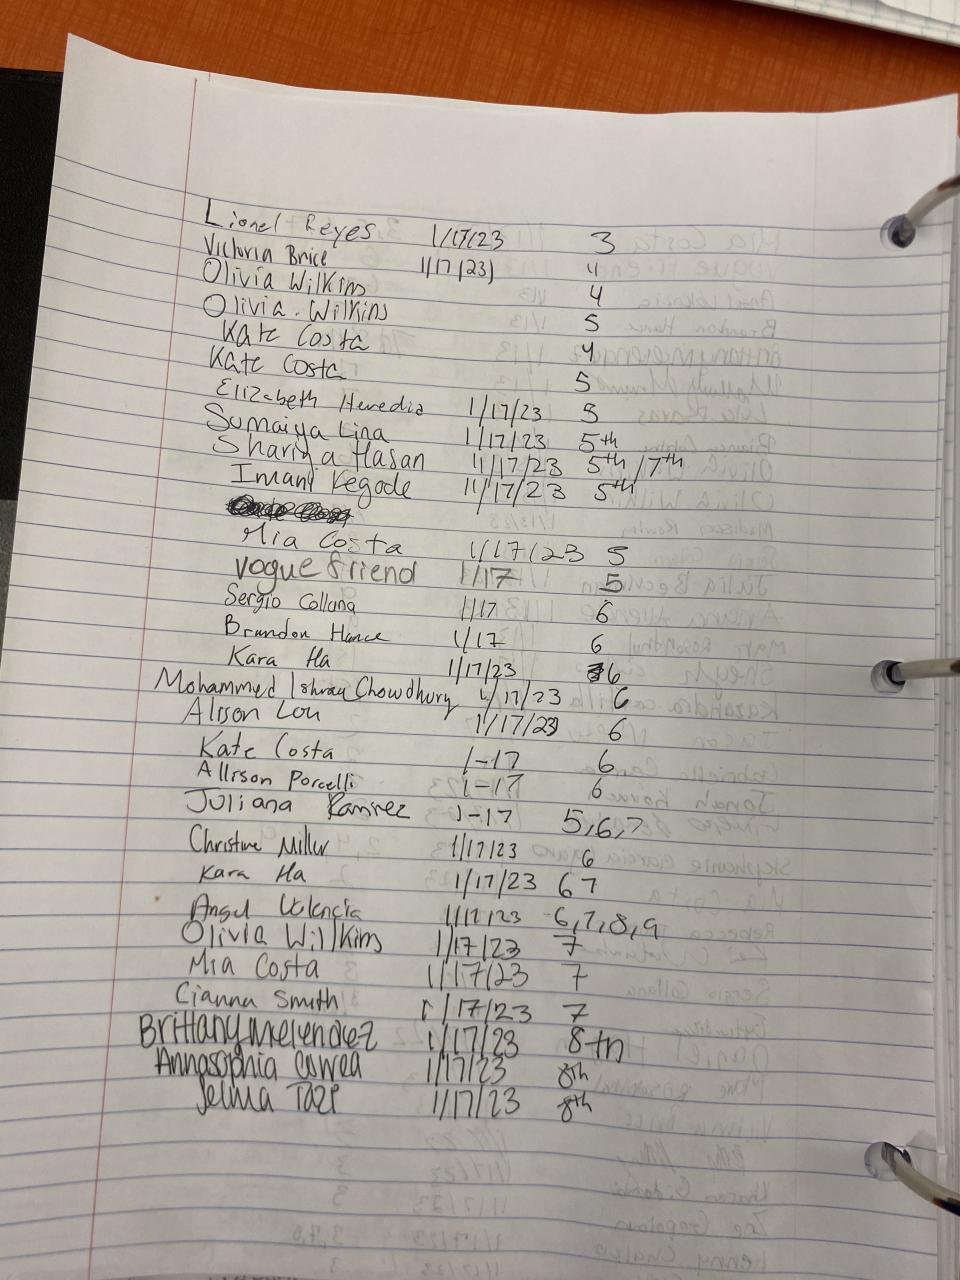 Lionel Reyes 1/17/23 3
Victoria Brice 1/17/23 4
Olivia Wilkins 4
Olivia. Wilkins 5
Kate Costa 4
Kate Costa 5
Elizabeth Heredia 1/17/23 5
Sumaiya Lina 1/17/23 5th
Hasan 1/17/23 5th/7th
Imani Kegode 1/17/23 5th
Mia Costa 1/17/23 5
vogue friend 1/17 5
Sergio Collana 1/17 6
Brandon Hance 1/17 6
Kara Ha 1/17/23 6
Mohammed Ishraq Chowdhury 1/17/23 6
Alison Lou 1/17/23 6
Kate Costa 1-17 6
Allison Porcelli 1-17 6
Juliana Ramirez 1-17 5,6,7
Christine Miller 1/17/23 6
Kara Ha 1/17/23 6 7
Angel Valencia 1/17/23 6,7,8,9
Olivia Wilkins 1/17/23 7
Mia Costa 1/17/23 7
Cianna Smith 1/17/23 7
Brittany Melendez 1/17/23 8th
Annasophia Correa 1/17/23 8th
Selma Tazi 1/17/23 8th